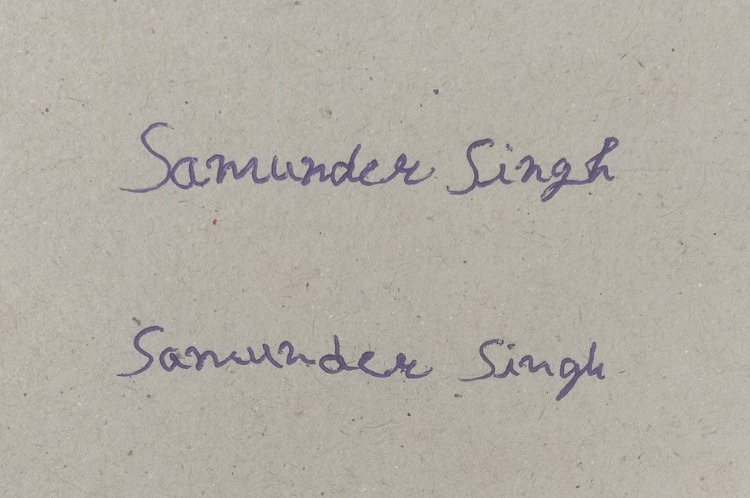 Samunder Singh
Samunder Singh